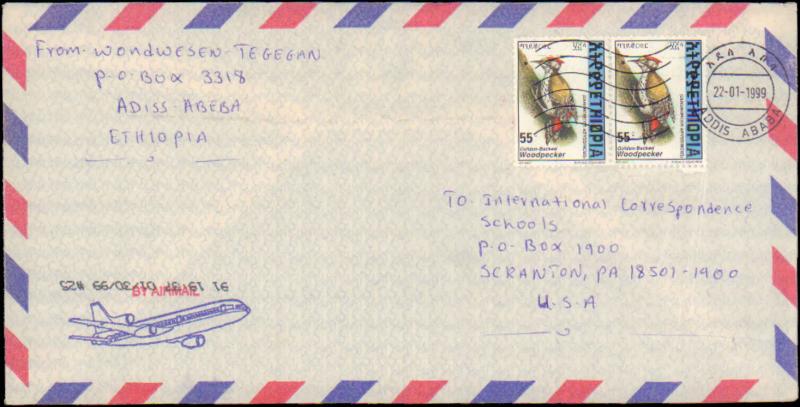 From- WONDWESEN-TEGEGAN
P-O-BOX 3318
ADISS-ABEBA
ETHIOPIA
55
Golden-Backed
Woodpecker
ETHIOPIA
55
Golden-Backed
Woodpecker
ETHIOPIA
አዲስ አበባ
22-01-1999
ADDIS ABABA
TO- International Correspondence
Schools
P-O-BOX 1900
SCRANTON, PA 18501-1900
U.S.A
01/30/99 #25
BY AIRMAIL